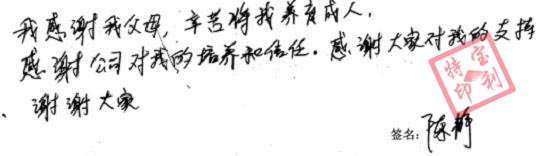 我感谢我父母，辛苦将我养育成人，
感谢公司对我的培养和信任。感谢大家对我的支持
、谢谢大家
签名：陈静
宝利
特印